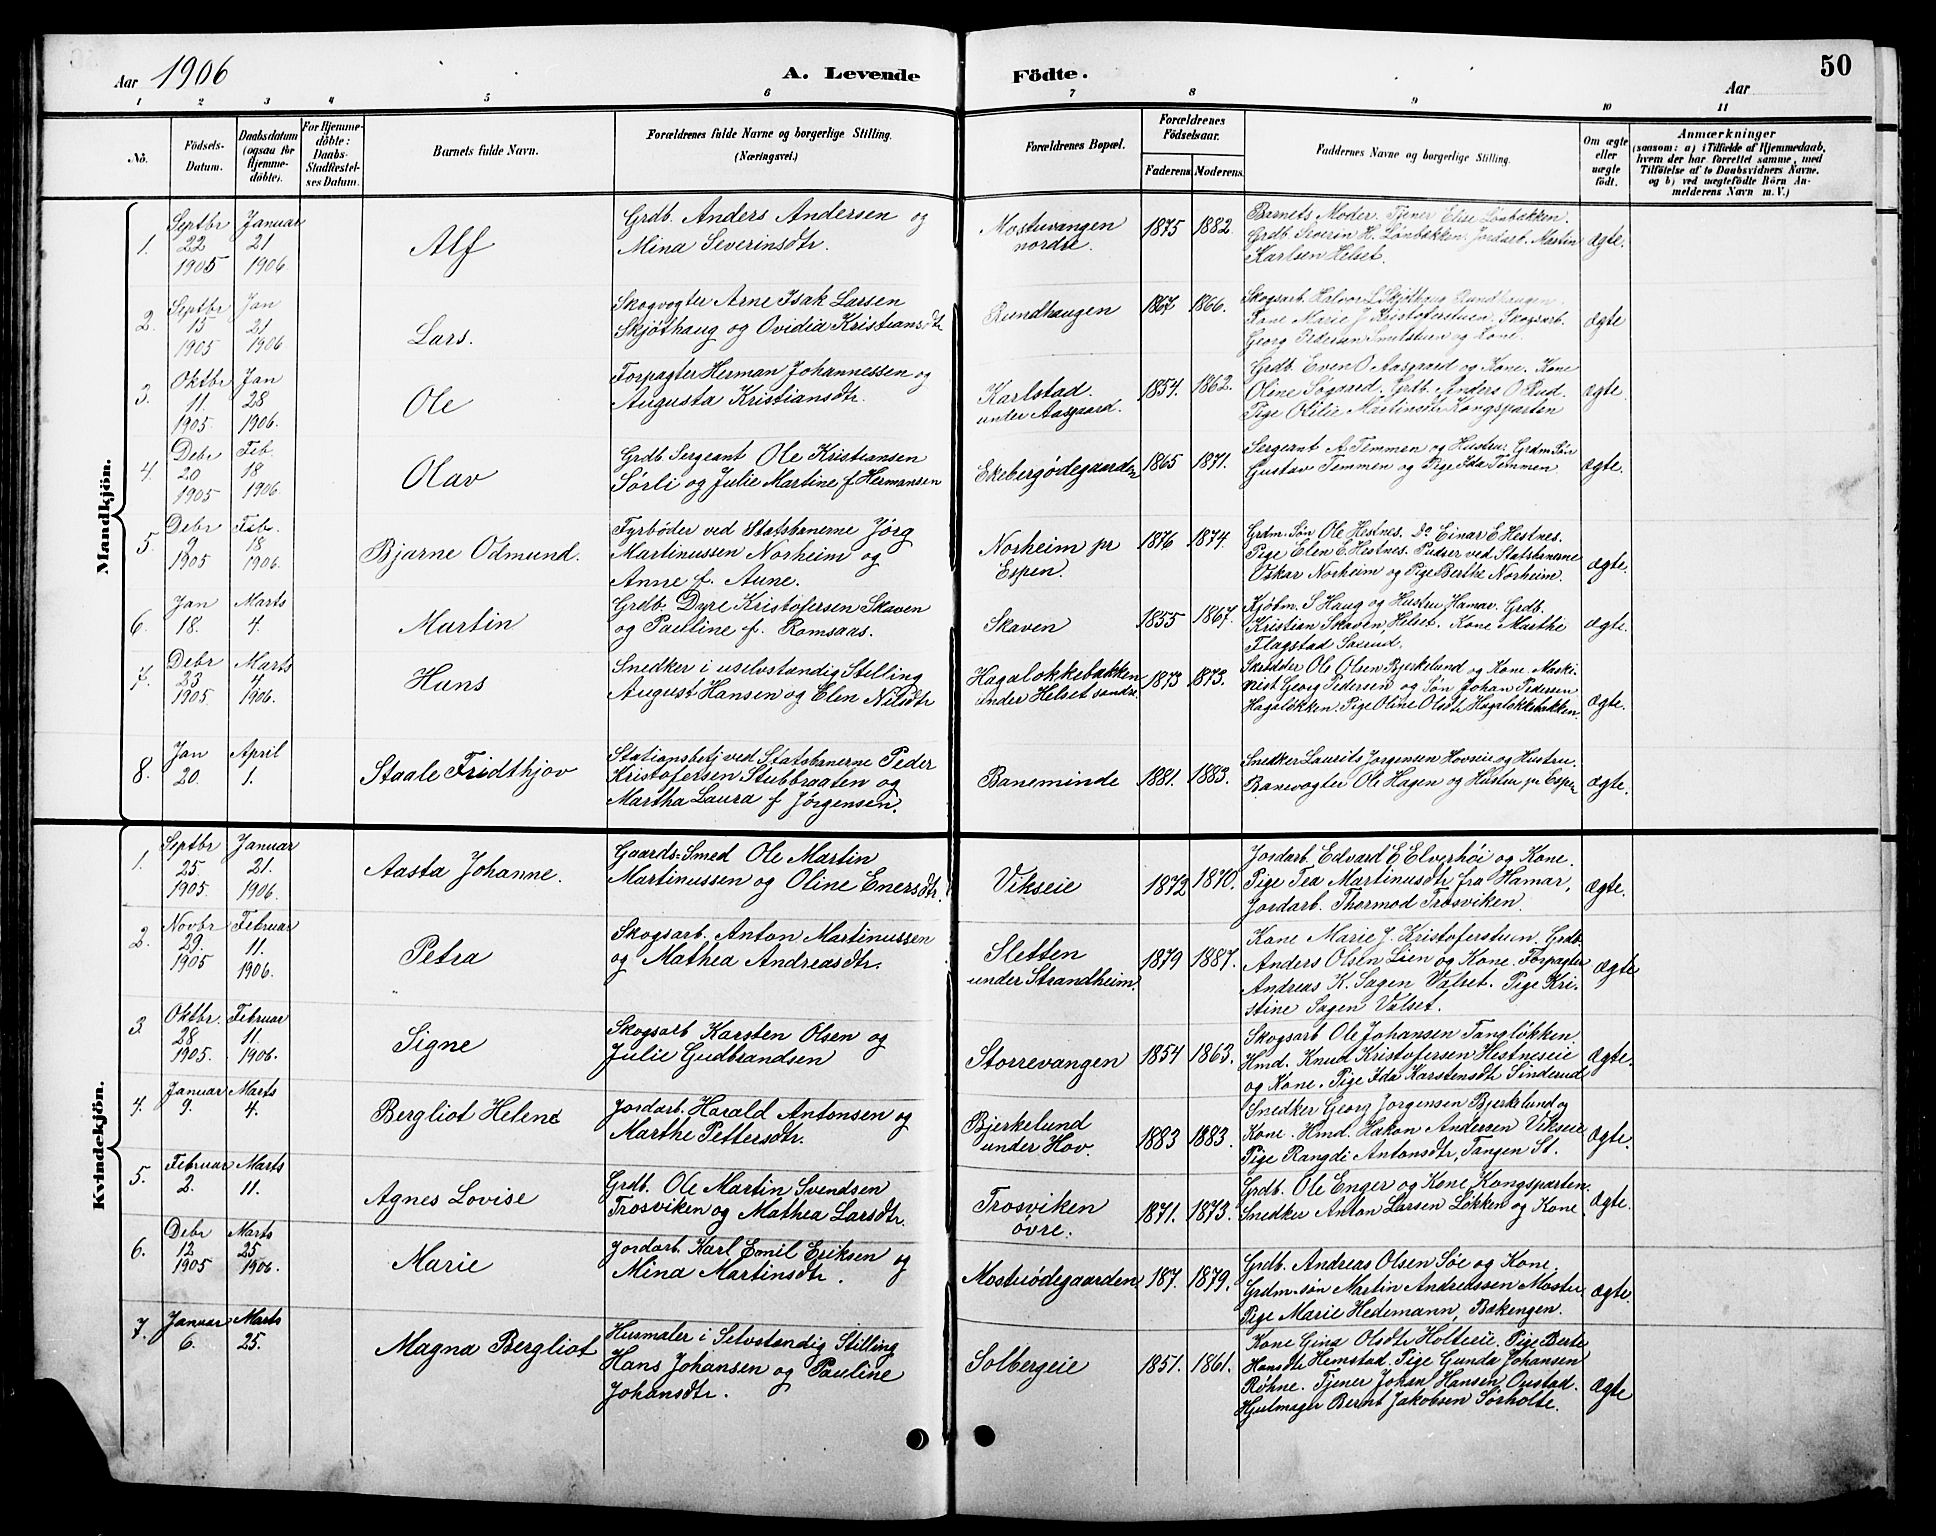 Aar 1906
A. Levende Födte.
Aar
50
1 2 3 4 5 6 7 8 9 10 11
No.
Födsels-Datum.
Daabsdatum (ogsaa for Hjemme-döbte).
For Hjemme-döbte: Daabs-Stadfæstel-ses Datum.
Barnets fulde Navn.
Forældrenes fulde Navne og borgerlige Stilling. (Næringsvei.)
Forældrenes Bopæl.
Forældrenes Födselsaar.
Faderens Moderens
Faddernes Navne og borgerlige Stilling.
Om ægte eller uægte födt.
Anmærkninger
(saasom: a) i Tilfælde af Hjemmedaab,
hvem der har forrettet samme, med
Tilföielse af to Daabsvidners Navne.
og b) ved uægtefödte Börn An-
melderens Navn m. V.)
Mandkjön.
1. Septbr 22 1905 Januar 21 1906
Alf
Grdb. Anders Andersen og
Mina Severinsdtr.
Mostuvangen
nordre.
1875 1882.
Barnets Moder. Tjener Elise Lønbakken.
Grdb. Severin H. Lønbakken. Jordarb. Martin
Karlsen Helset.
Ægte.
2. Septbr 15 1905 Jan 21 1906
Lars.
Skogvogter Arne Isak Larsen
Skjøthaug og Ovidia Kristiansdtr
Rundhaugen
1867 1866.
Skogsarb. Halvor L Skjøthaug Rundhaugen.
Kone Marie J. Kristoferstuen. Skogsarb.
Georg Pedersen Smedstuen og Kone.
Ægte
3. Oktbr 11. 1905. Jan 28 1906.
Ole
Forpagter Herman Johannessen og
Augusta Kristiansdtr.
Karlstad
under Aasgaard.
1854. 1862.
Grdb. Even O Aasgaard og Kone. Kone
Oline Sögaard. Grdb. Anders O Rud.
Pige Otilie Martinsdtr Kongsparten
Ægte.
4. Debr 20 1905 Feb. 18 1906.
Olav
Grdb Sergeant Ole Kristiansen
Sørli og Julie Martine f Hermansen
Ekebergødegaarden
1865 1871.
Sergeant A. Temmen og Hustru. Grdm Søn
Gustav Temmen og Pige Ida Temmen
Ægte.
5. Debr 9 1905 Feb. 18 1906.
Bjarne Odmund.
Fyrbøder ved Statsbanerne Jørg
Martinussen Norheim og
Anne f. Aune.
Norheim pr
Espen.
1876 1874.
Grdm. Søn Ole Hestnes. Do Einar E Hestnes.
Pige Elen E Hestnes. Pudser ved Statsbanerne
Oskar Norheim og Pige Berthe Norheim.
Ægte.
6. Jan 18. Marts 4.
Martin
Grdb. Dyre Kristofersen Skaven
og Pauline f. Romsaas.
Skaven
1855 1867.
Kjøbm. S Haug og Hustru Hamar. Grdb.
Kristian Skaven, Helset. Kone Marthe
Flagstad
Ægte.
7. Debr 23 1905 Marts 4 1906.
Hans
Snedker i uselvstændig Stilling
August Hansen og Elen Nilsdtr
Hagaløkkebakken
under Helset søndre.
1873 1873.
Skrædder Ole Olsen Bjerkelund og Kone. Maski-
nist Georg Pedersen og Søn Johan Pedersen
Hagaløkken. Pige Oline Olsdtr Hagaløkkebakken.
Ægte.
8. Jan 20. April 1.
Staale Fridthjov
Stationsbetj ved Statsbanerne Peder
Kristofersen Stubbraaten og
Martha Laura f Jørgensen.
Baneminde
1881. 1883.
Snedker Laurits Jorgensen Hovseie og Hustru.
Banevogter Ole Hagen og Hustru pr Espen
Ægte.
Kvindekjön.
1. Septbr 25 1905 Januar 21. 1906.
Aasta Johanne.
Gaards-Smed Ole Martin
Martinussen og Oline Enersdtr.
Vikseie
1872 1870.
Jordarb. Edvard E Elverhöi og Kone.
Pige Tea Martinusdtr fra Hamar,
Jordarb. Thormod Trosviken.
Ægte.
2. Novbr 29. 1905 Februar 11. 1906.
Petra
Skogsarb. Anton Martinussen
og Mathea Andreasdtr.
Sletten
under Strandheim.
1879 1887.
Kone Marie J. Kristoferstuen. Grdb.
Anders Olsen Lien og Kone. Forpagter
Andreas K. Sagen Valset. Pige Kri-
stine Sagen Valset.
Ægte
3 Oktbr. 28 1905. Februar 11. 1906.
Signe
Skogsarb Karsten Olsen og
Julie Gudbrandsen
Storrevangen
1854 1863.
Skogsarb Ole Johansen Tangløkken
Hmd. Knud Kristofersen Hestneseie
og Kone. Pige Ida Karstensdtr Sinderud
Ægte.
4. Januar 9. Marts 4.
Bergliot Helene
Jordarb. Harald Antonsen og
Marthe Pettersdtr.
Bjerkelund
under Hov.
1883 1883.
Snedker Georg Jorgensen Bjerkelund og
Kone. Hmd. Hakon Andersen Vikseie
Pige Rangdi Antonsdtr, Tangen St.
Ægte.
5. Februar 2. Marts 11.
Agnes Lovise
Grdb. Ole Martin Svendsen
Trosviken og Mathea Larsdtr.
Trosviken
øvre.
1871. 1873.
Grdb. Ole Enger og Kone Kongsparten.
Snedker Anton Larsen Løkken og Kone
Ægte.
6. Debr 12 1905 Marts 25 1906.
Marie
Jordarb. Karl Emil Eriksen og
Mina Martinsdtr.
Mostuødegaarden
187. 1879.
Grdb. Andreas Olsen Søe og Kone.
Grdm-søn Martin Andreassen Mostu
Pige Marie Hedemann, Bakengen.
Ægte.
7. Januar 6. Marts 25.
Magna Bergliot
Husmaler i Selvstændig Stilling
Hans Johansen og Pauline
Johansdtr.
Solbergeie
1851. 1861.
Kone Gina Olsdtr Holteeie. Pige Berte
Hansdtr Hemstad. Pige Gunda Johansen
Røhne. Tjener Johan Hansen Orustad.
Hjulmager Bernt Jakobsen Sørholte.
Ægte